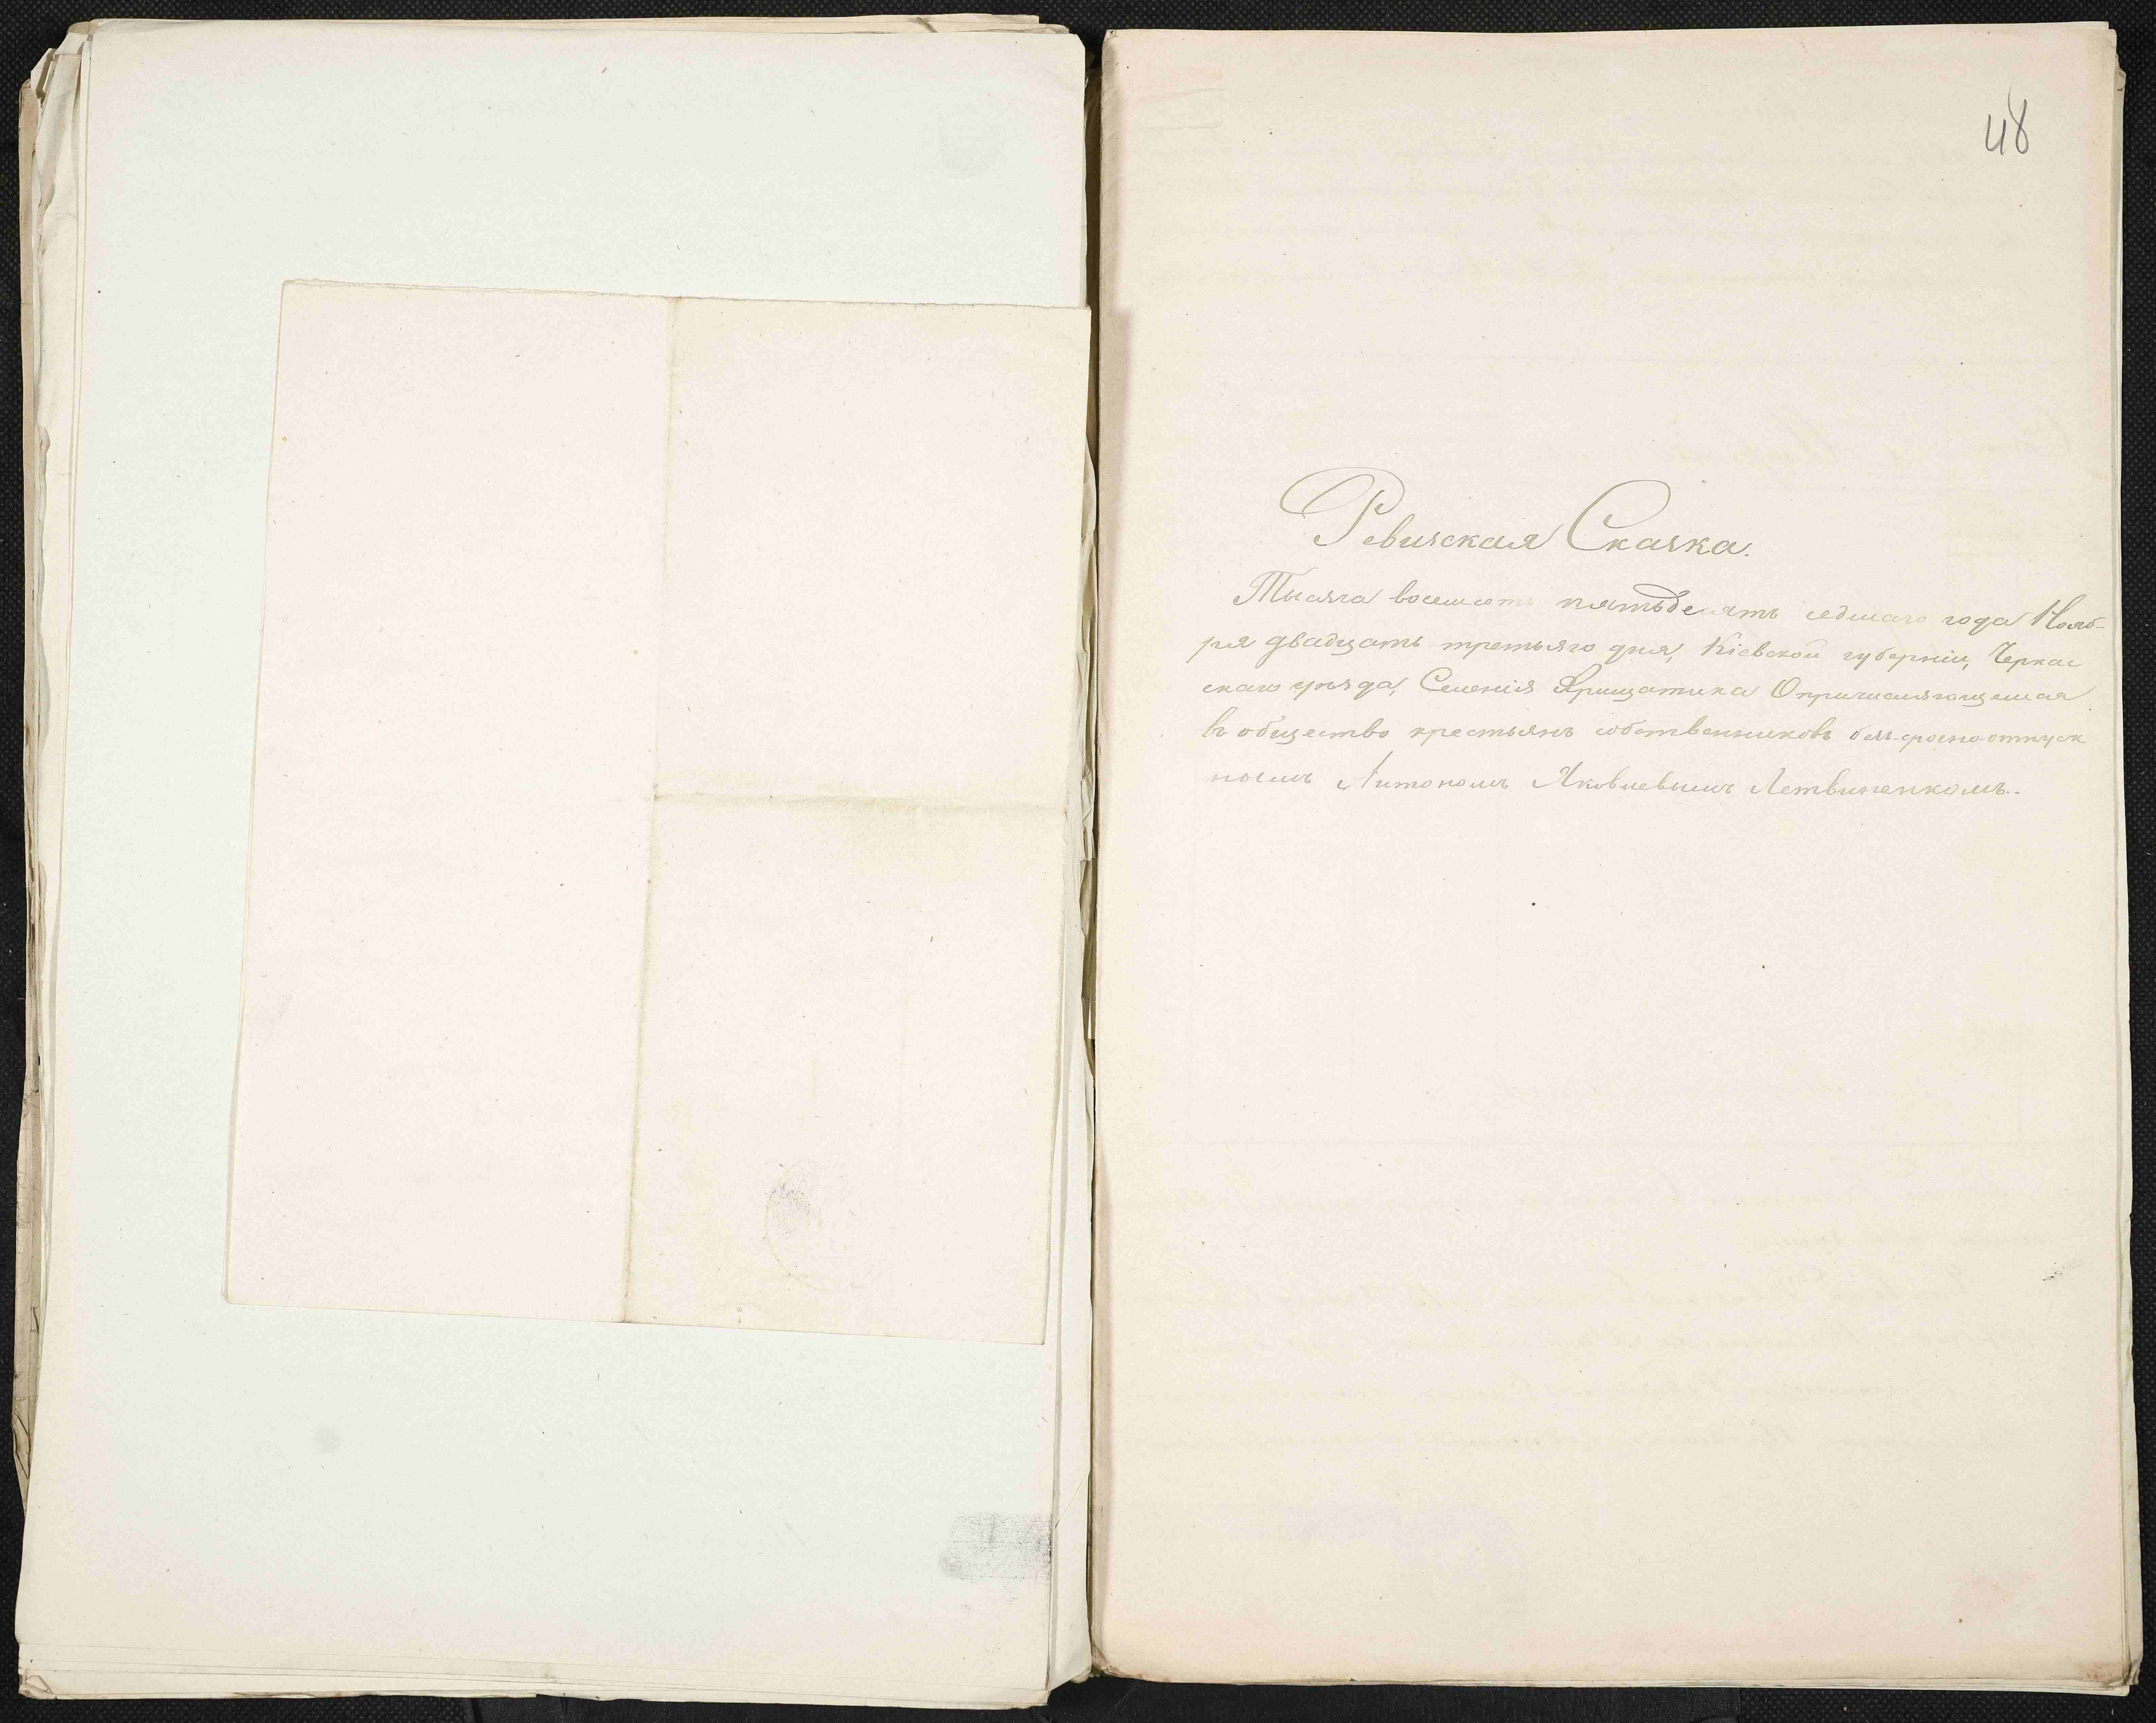 48
Ревизская Сказка.
Тысяча восемсотъ пятьдесятъ седмаго года Нояб-
ря двадцать третьяго дня, Кіевской губерніи, Черкас
скаго уѣзда, Селенія Хрищатика О причисляющемся
въ общество крестьянъ собственниковъ без-срочно-отпуск
номъ Антономъ Яковлевымъ Летвиненкомъ.